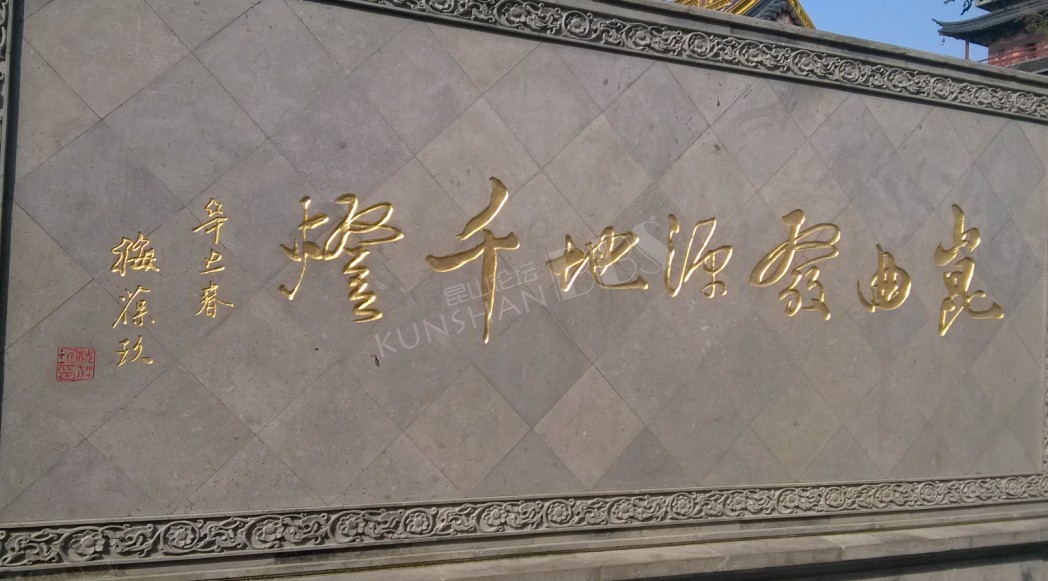 崑曲發源地千燈
辛巳春
梅葆玖
昆山论坛
BBS
KUNSHAN